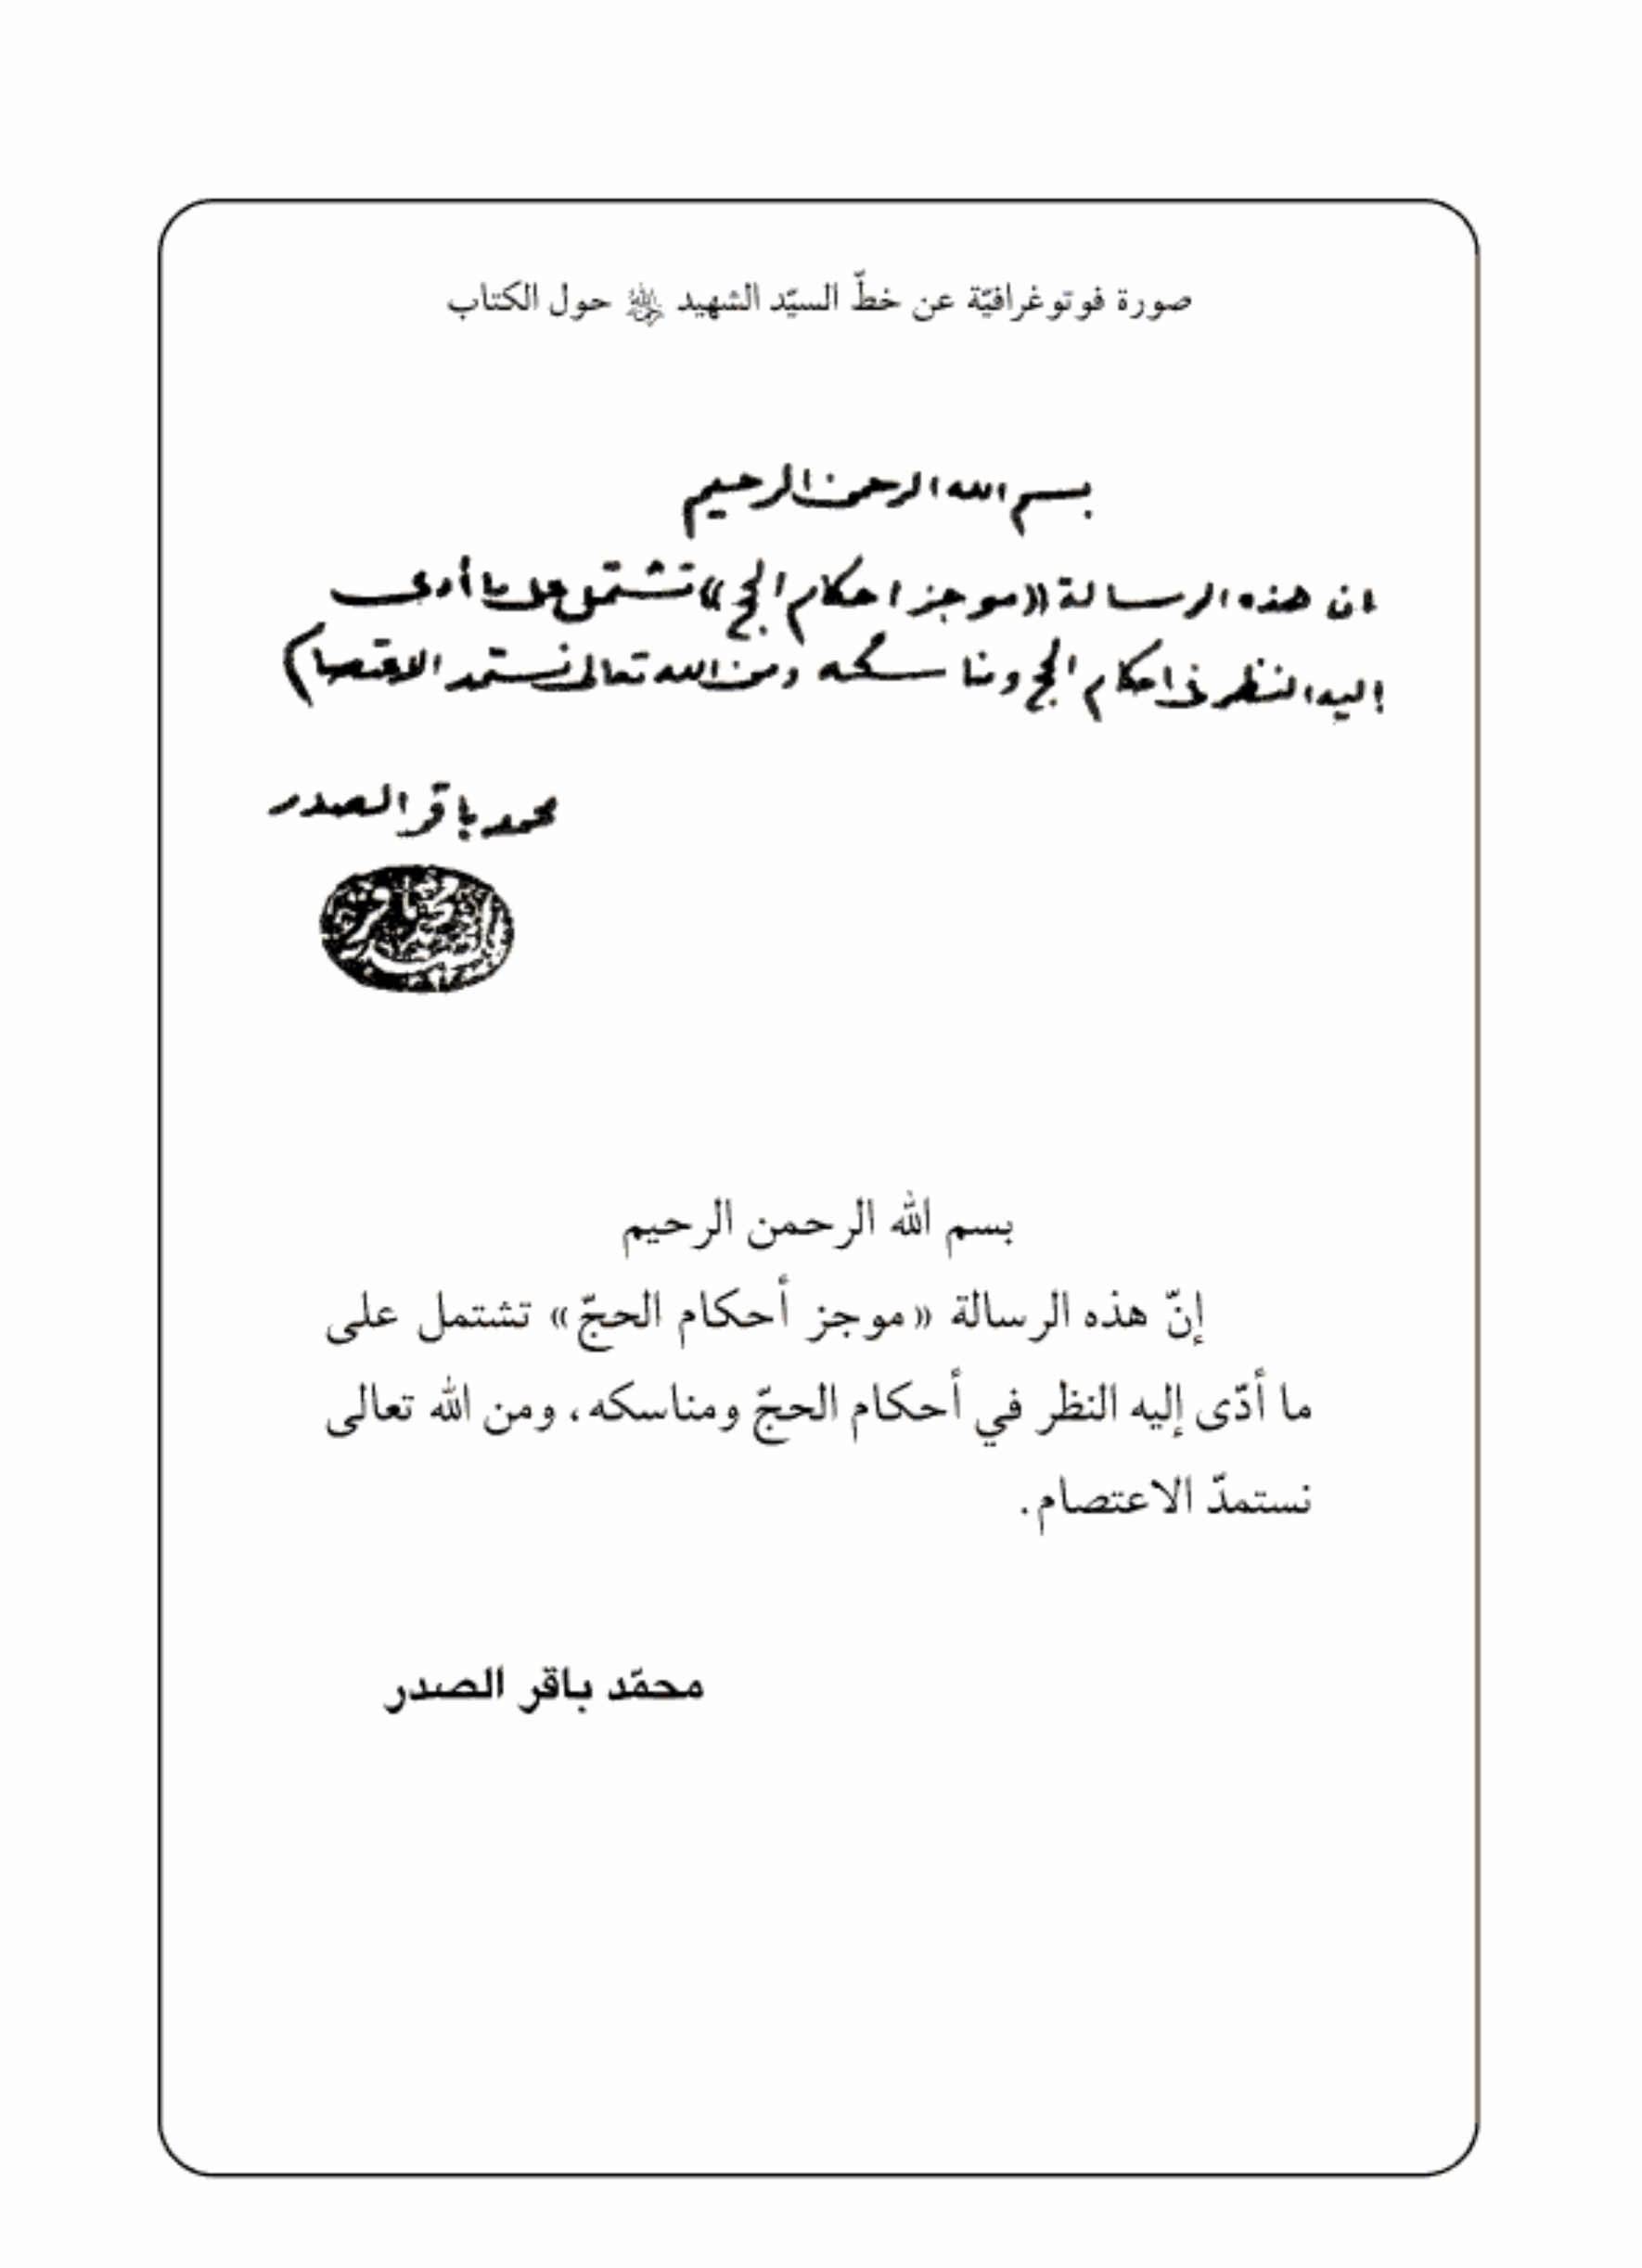 صورة فوتوغرافيّة عن خطّ السيّد الشهيد حول الكتاب
بسم الله الرحمن الرحيم
ان هذه الرسالة «موجز احكام الحج» تشتمل على ما أدى
إليه النظر في احكام الحج ومناسكه ومن الله تعالى نستمد الاعتصام
محمد باقر الصدر
محمد باقر
بسم الله الرحمن الرحيم
إنّ هذه الرسالة «موجز أحكام الحجّ» تشتمل على
ما أدّى إليه النظر في أحكام الحجّ ومناسكه، ومن الله تعالى
نستمدّ الاعتصام.
محمّد باقر الصدر